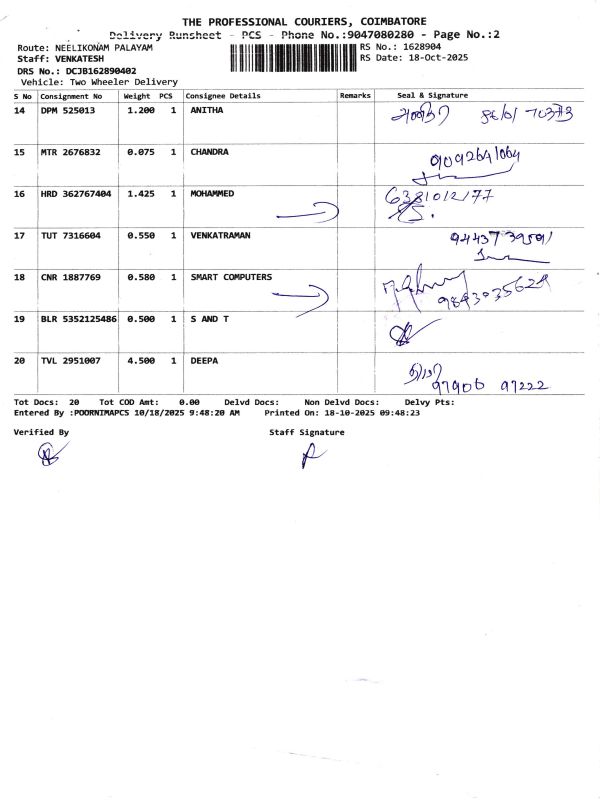 THE PROFESSIONAL COURIERS, COIMBATORE
Delivery Runsheet - PCS - Phone No.:9047080280 - Page No.:2
Route: NEELIKONAM PALAYAM RS No.: 1628904
Staff: VENKATESH RS Date: 18-Oct-2025
DRS No.: DCJB162890402
Vehicle: Two Wheeler Delivery
S No Consignment No Weight PCS Consignee Details Remarks Seal & Signature
14 DPM 525013 1.200 1 ANITHA
15 MTR 2676832 0.075 1 CHANDRA
9092641064
16 HRD 362767404 1.425 1 MOHAMMED
6381012177
17 TUT 7316604 0.550 1 VENKATRAMAN
18 CNR 1887769 0.580 1 SMART COMPUTERS
19 BLR 5352125486 0.500 1 S AND T
20 TVL 2951007 4.500 1 DEEPA
97906 97222
Tot Docs: 20 Tot COD Amt: 0.00 Delvd Docs: Non Delvd Docs: Delvy Pts:
Entered By :POORNIMAPCS 10/18/2025 9:48:20 AM Printed On: 18-10-2025 09:48:23
Verified By Staff Signature